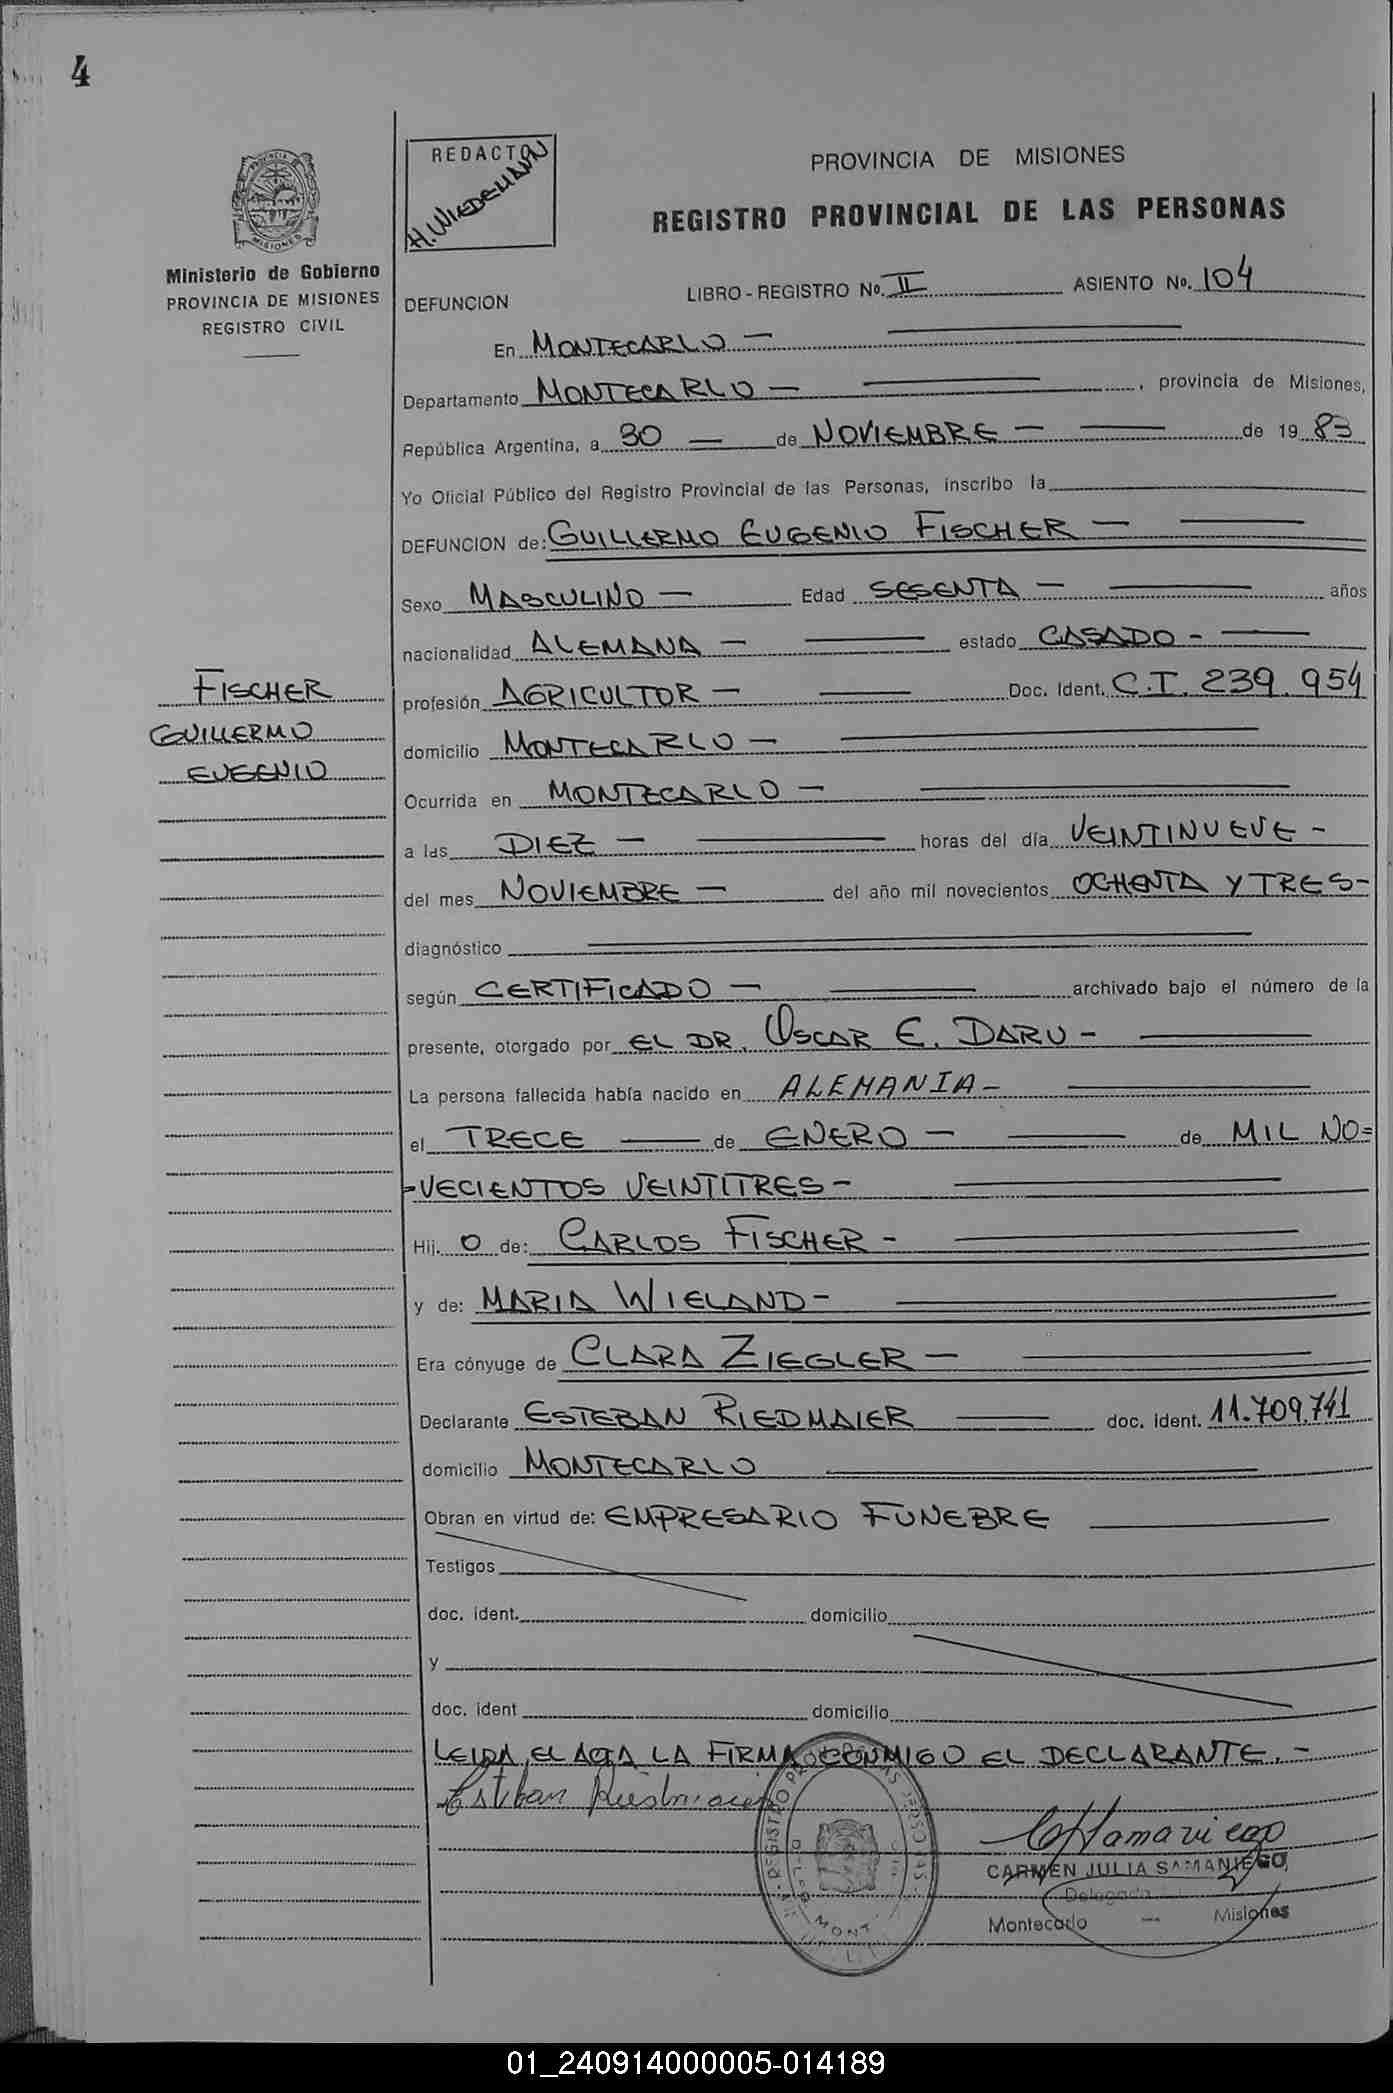 4
PROVINCIA DE MISIONES
REDACTO
H. WIEDEMANN
PROVINCIA DE MISIONES
REGISTRO PROVINCIAL DE LAS PERSONAS
Ministerio de Gobierno
PROVINCIA DE MISIONES
REGISTRO CIVIL
DEFUNCION LIBRO-REGISTRO No. II ASIENTO No. 104
En MONTECARLO —
Departamento MONTECARLO — , provincia de Misiones,
República Argentina, a 30 — de NOVIEMBRE — de 19 83
Yo Oficial Público del Registro Provincial de las Personas, inscribo la
DEFUNCION de: GUILLERMO EUGENIO FISCHER —
Sexo MASCULINO — Edad SESENTA — años
nacionalidad ALEMANA — estado CASADO -
FISCHER
GUILLERMO
EUGENIO
profesión AGRICULTOR — Doc. Ident. C.I. 239.954
domicilio MONTECARLO —
Ocurrida en MONTECARLO —
a las DIEZ — horas del día VEINTINUEVE -
del mes NOVIEMBRE — del año mil novecientos OCHENTA Y TRES-
diagnóstico
según CERTIFICADO — archivado bajo el número de la
presente, otorgado por EL DR. OSCAR E. DARU -
La persona fallecida había nacido en ALEMANIA -
el TRECE — de ENERO — de MIL NO=
-VECIENTOS VEINTITRES -
Hij. O de: CARLOS FISCHER -
y de: MARIA WIELAND -
Era cónyuge de CLARA ZIEGLER —
Declarante ESTEBAN RIEDMAIER — doc. ident. 11.709.741
domicilio MONTECARLO
Obran en virtud de: EMPRESARIO FUNEBRE
Testigos
doc. ident. domicilio
y
doc. ident domicilio
LEIDA EL ACTA LA FIRMA CONMIGO EL DECLARANTE. -
Esteban Riedmaier
CARMEN JULIA SAMANIEGO
Delegada
Montecarlo — Misiones
01_240914000005-014189